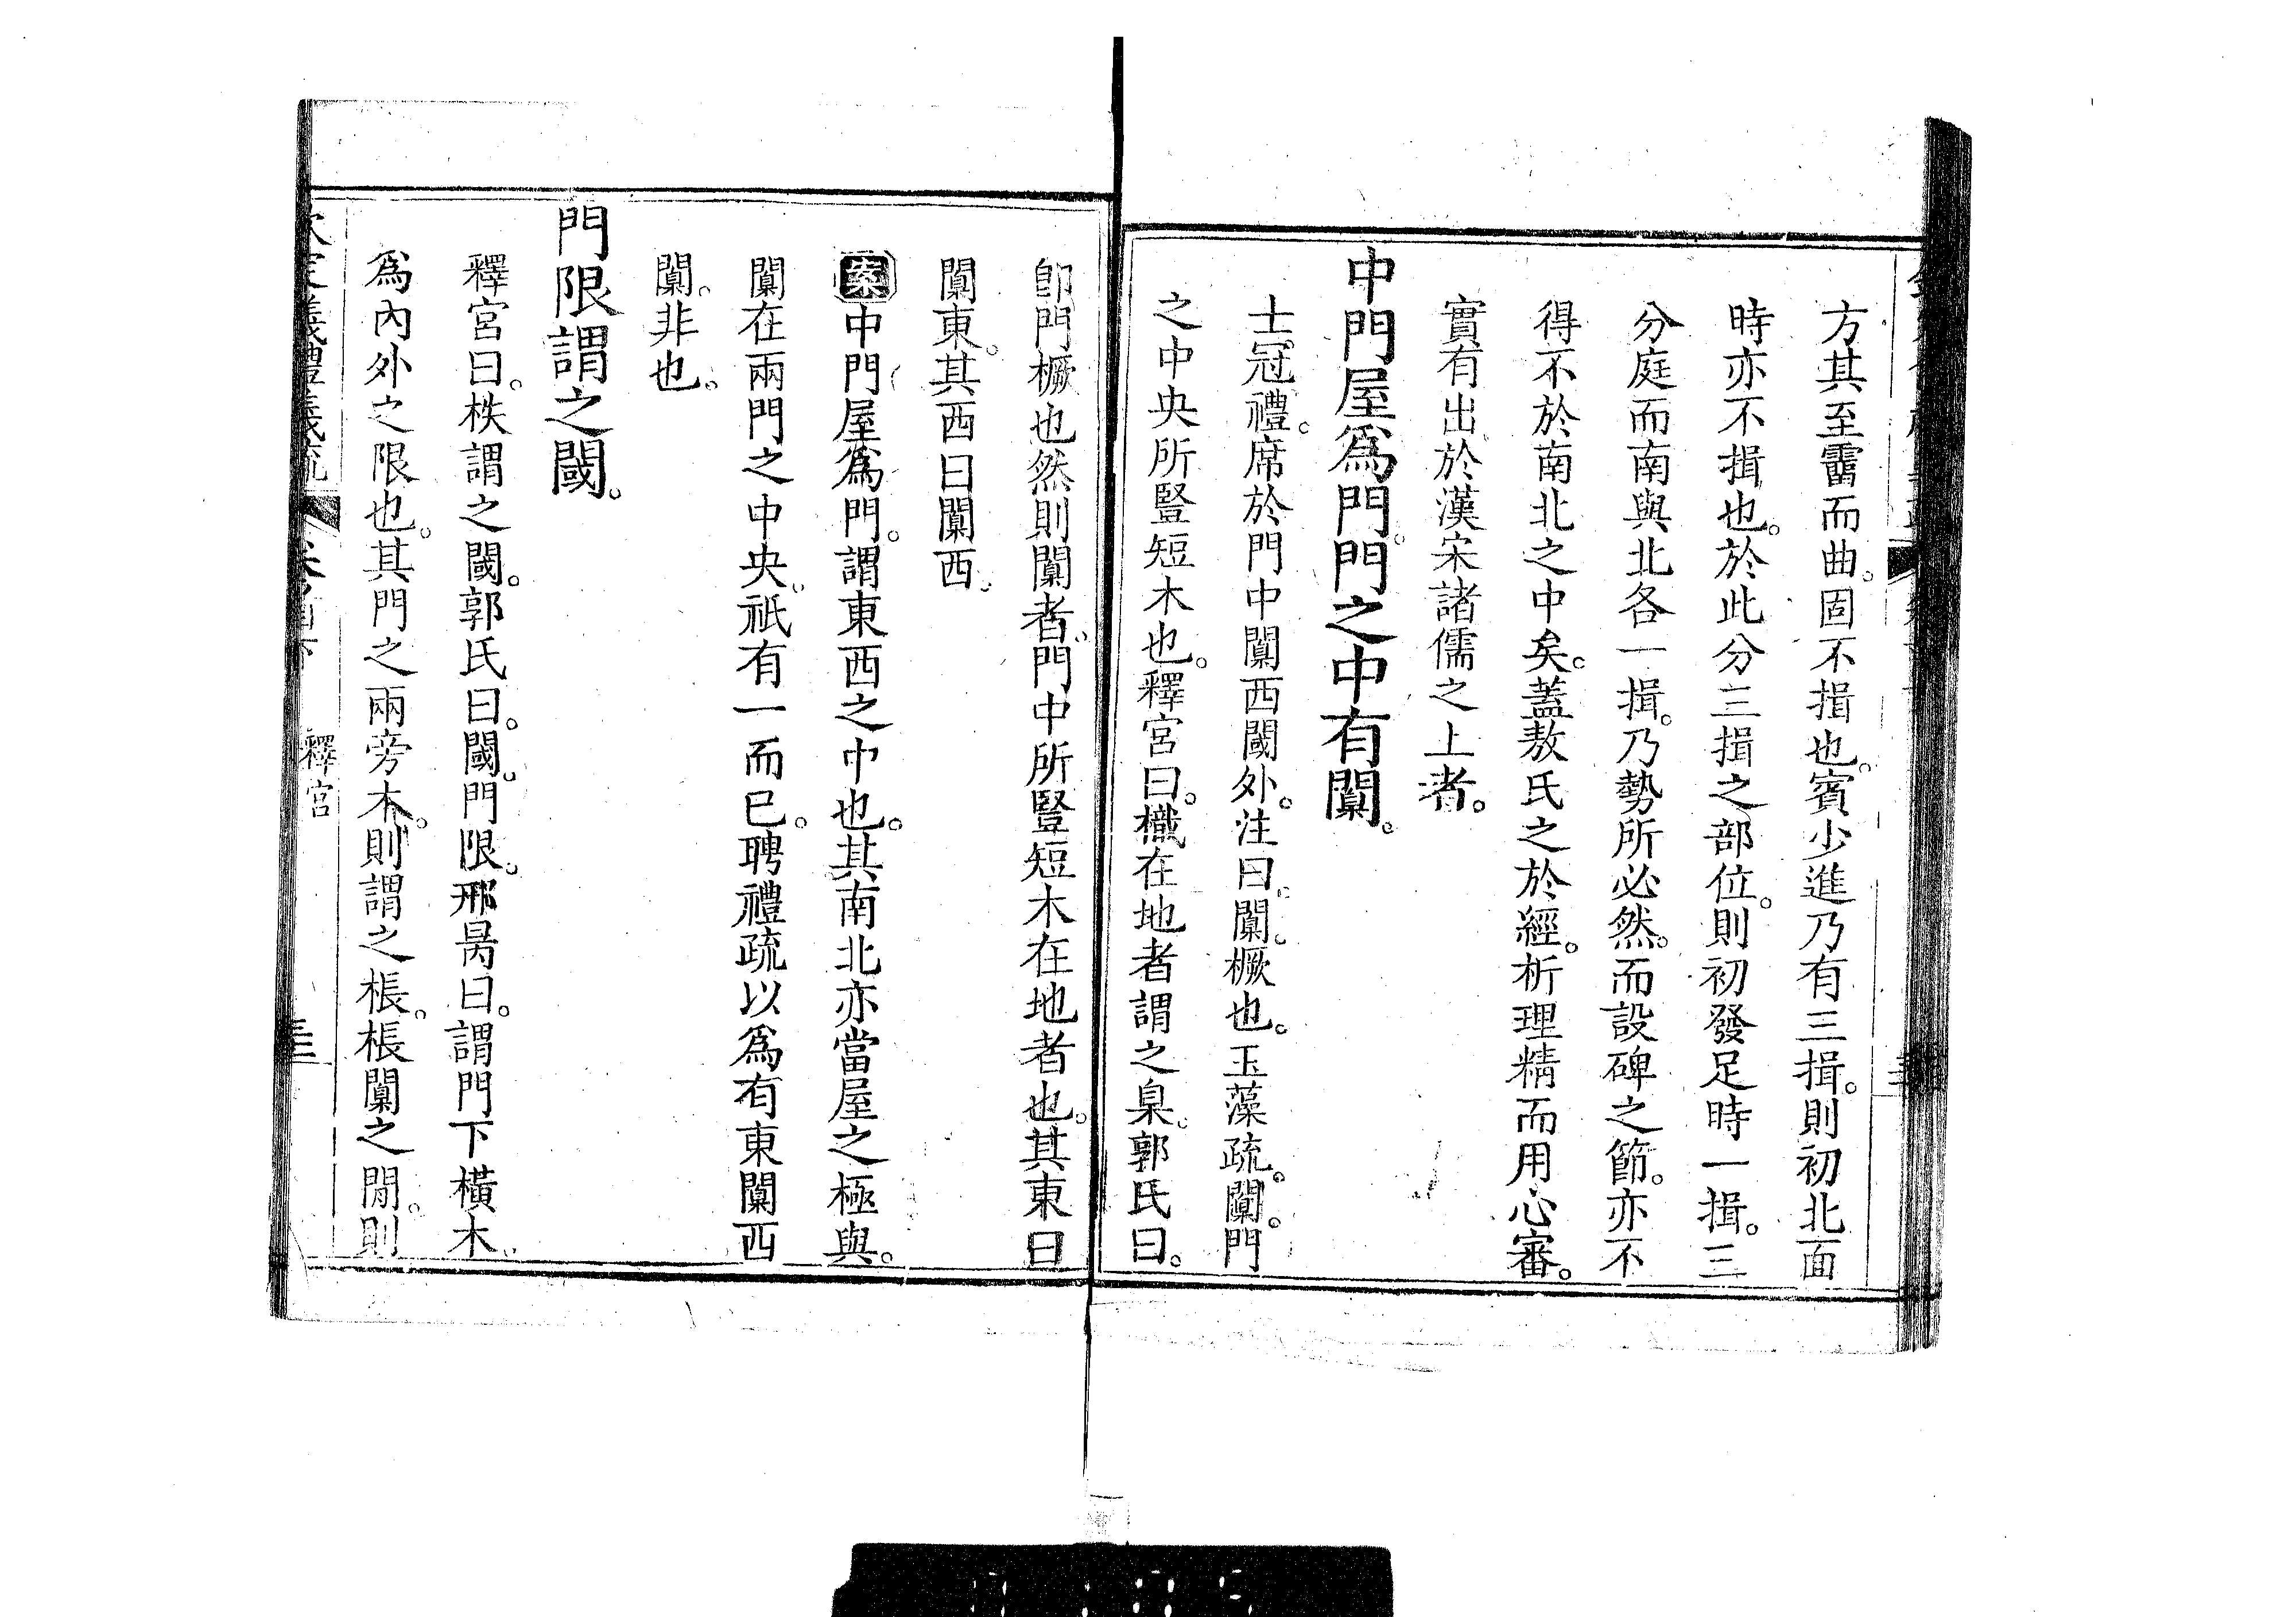 方其至霤而曲。固不揖也。賓少進乃有三揖。則初北面
時亦不揖也。於此分三揖之部位。則初發足時一揖。三
分庭而南與北各一揖。乃勢所必然。而設碑之節。亦不
得不於南北之中矣。蓋敖氏之於經。析理精而用心審。
實有出於漢宋諸儒之上者。
中門屋爲門。門之中有闑。
士冠禮。席於門中闑西閾外。注曰。闑。橛也。玉藻疏。闑。門
之中央所豎短木也。釋宮曰。樴在地者謂之臬。郭氏曰。
卽門橛也然則闑者。門中所豎短木在地者也。其東曰
闑東。其西曰闑西。
案中門屋爲門。謂東西之中也。其南北亦當屋之極與。
闑在兩門之中央。祇有一而已。聘禮疏以爲有東闑西
闑。非也。
門限謂之閾。
釋宮曰。柣謂之閾。郭氏曰。閾。門限。邢昺曰。謂門下橫木。
爲內外之限也。其門之兩旁木。則謂之棖。棖闑之閒。則
欽定儀禮義疏 卷首下 釋宮